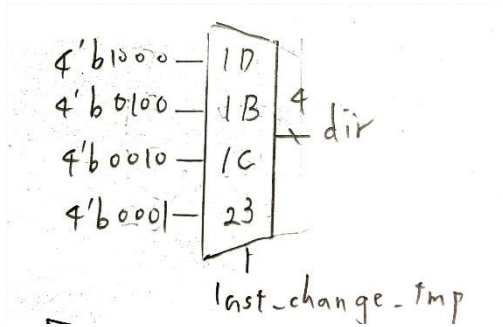 4'b1000 1D
4'b0100 1B 4
dir
4'b0010 1C
4'b0001 23
last_change_tmp